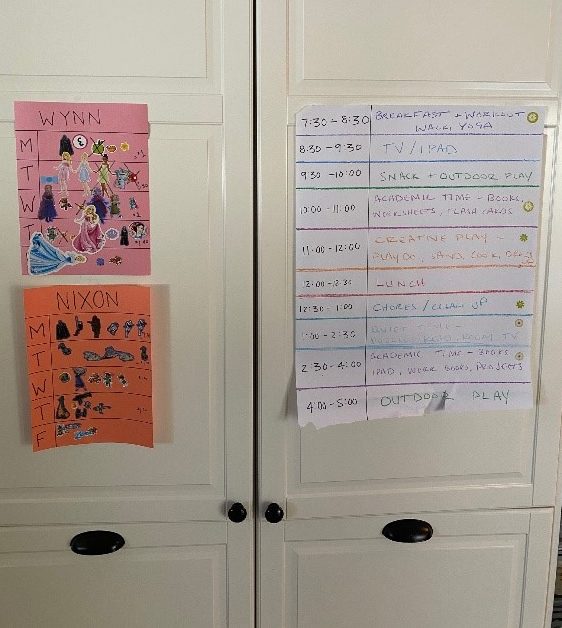 WYNN
M
T
W
T
NIXON
M
T
W
T
F
7:30 - 8:30 BREAKFAST + WORKOUT
WALK, YOGA
8:30 - 9:30 TV / IPAD
9:30 - 10:00 SNACK + OUTDOOR PLAY
10:00 - 11:00 ACADEMIC TIME - BOOKS,
WORKSHEETS, FLASH CARDS
11:00 - 12:00 CREATIVE PLAY -
PLAYDO, SAND, COOK,
12:00 - 12:30 LUNCH
12:30 - 1:00 CHORES / CLEAN UP
1:00 - 2:30 QUIET TIME -
READ, ROOM, TV
2:30 - 4:00 ACADEMIC TIME - BOOKS
IPAD, WORK BOOKS, PROJECTS
4:00 - 5:00 OUTDOOR PLAY